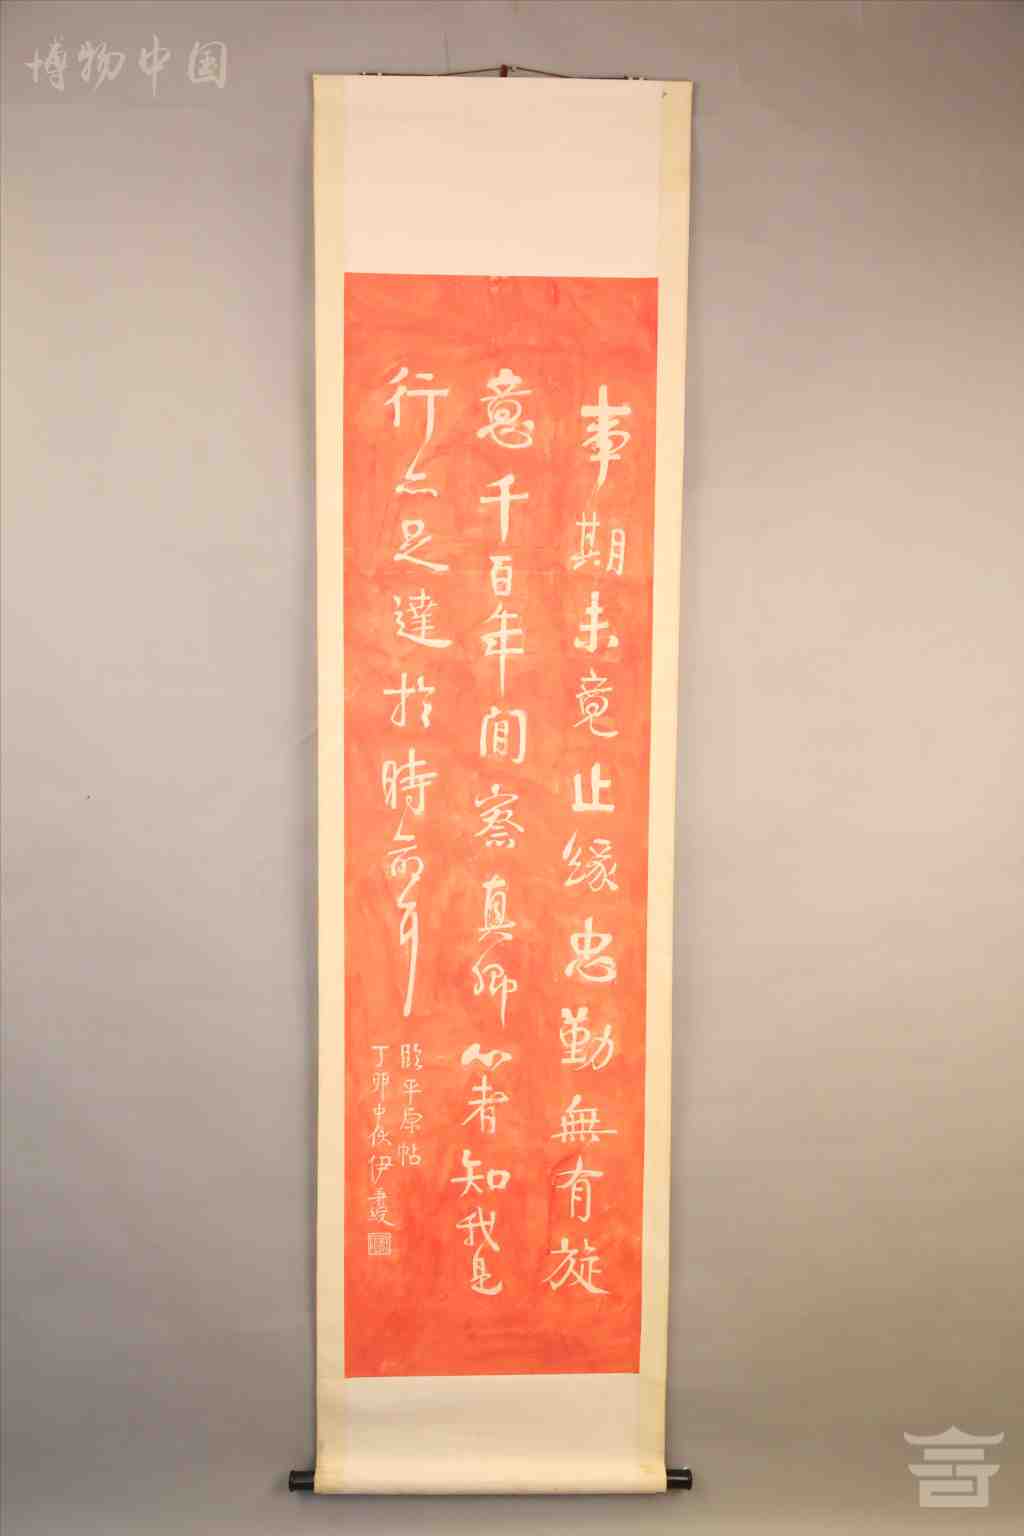 博物中国
事期未竟止缘忠勤無有旋
意千百年間察真卿心者知我是
行亦足達於時命耳
臨平原帖
丁卯中秋伊秉綬